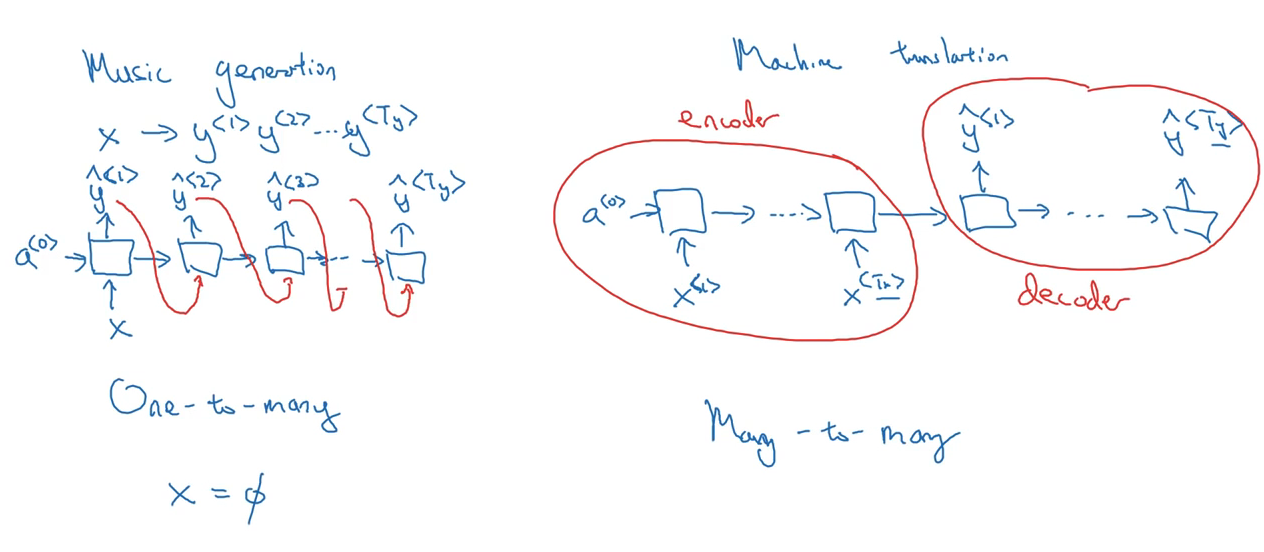 Music generation
x → y<1> y<2> ... y<Ty>
ŷ<1> ŷ<2> ŷ<3> ŷ<Ty>
a<0>
x
One-to-many
x = ϕ
Machine translation
encoder
ŷ<1> ŷ<Ty>
a<0> ....
x<1> x<Tx>
decoder
Many-to-many